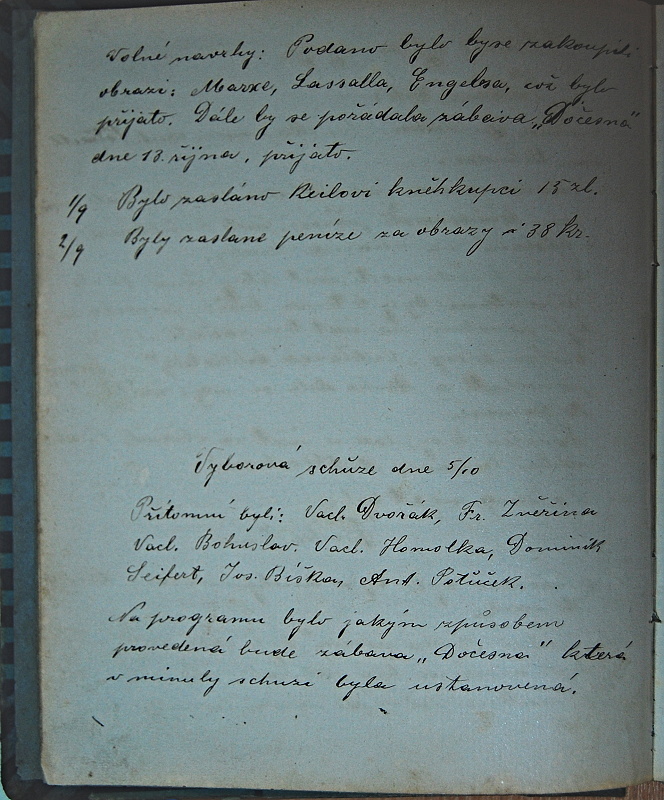 Volné navrhy: Podano bylo byse zakoupili
obrazi: Marxe, Lassalla, Engelsa, což bylo
přijato. Dále by se pořádala zábava „Dočesná"
dne 13. října, přijato.
1/9 Bylo zasláno Keilovi kněhkupci 15 zl.
2/9 Byly zaslané peníze za obrazy 38 kr.
Vyborová schůze dne 5/10
Přítomni byli: Vacl. Dvořák, Fr. Zvěřina
Vacl. Bohuslav. Vacl. Homolka, Dominik
Seifert, Jos. Bíška, Ant. Potůček.
Na programu bylo jakým způsobem
provedená bude zábava „Dočesná" která
v minuly schuzi byla ustanovená.